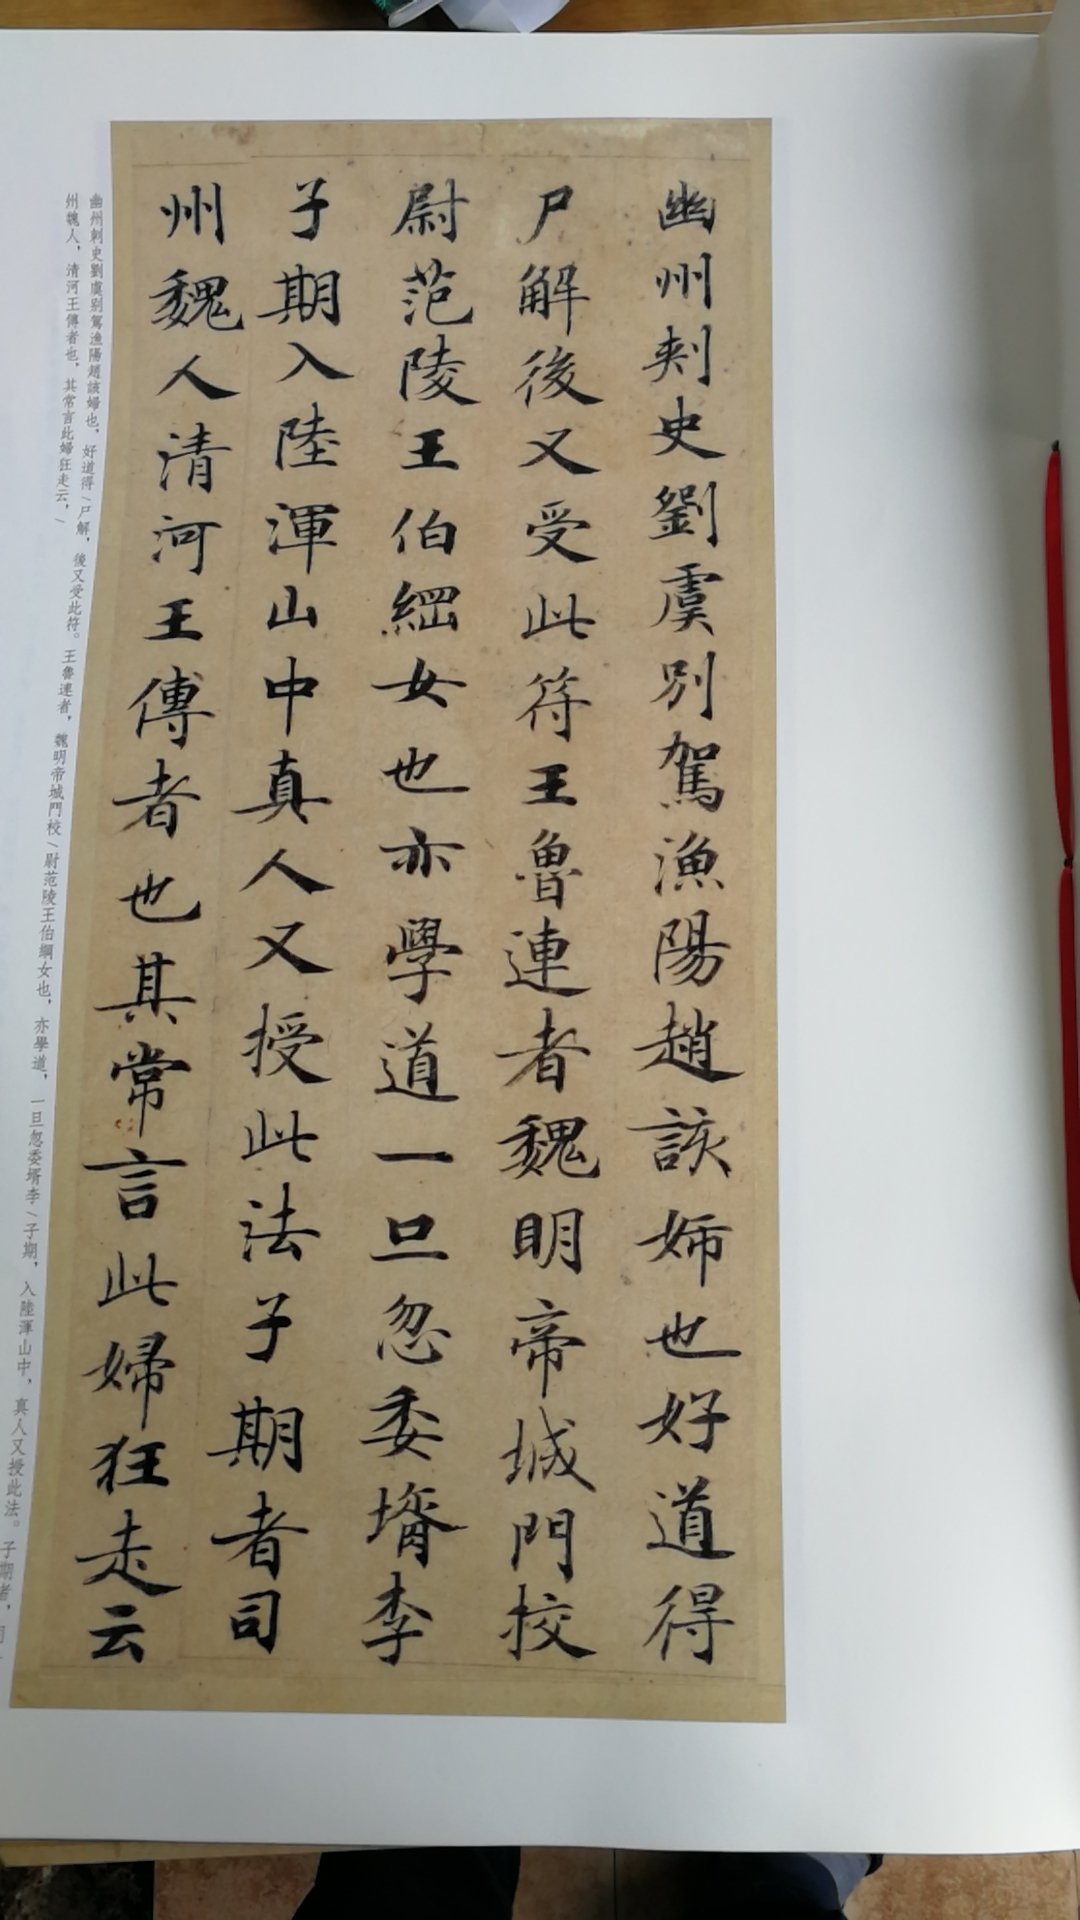 幽州刺史劉虞別駕漁陽趙該姉也好道得
尸解後又受此符王魯連者魏明帝城門校
尉范陵王伯綱女也亦學道一旦忽委壻李
子期入陸渾山中真人又授此法子期者司
州魏人清河王傅者也其常言此婦狂走云
幽州刺史劉虞別駕漁陽趙該婦也，好道得/尸解，後又受此符。王魯連者，魏明帝城門校/尉范陵王伯綱女也，亦學道，一旦忽委壻李/子期，入陸渾山中，真人又授此法。子期者，司
州魏人，清河王傅者也，其常言此婦狂走云，/